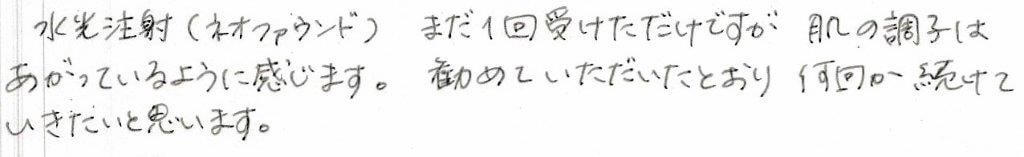 水光注射（ネオファウンド） まだ1回受けただけですが 肌の調子は
あがっているように感じます。 勧めていただいたとおり 何回か続けて
いきたいと思います。